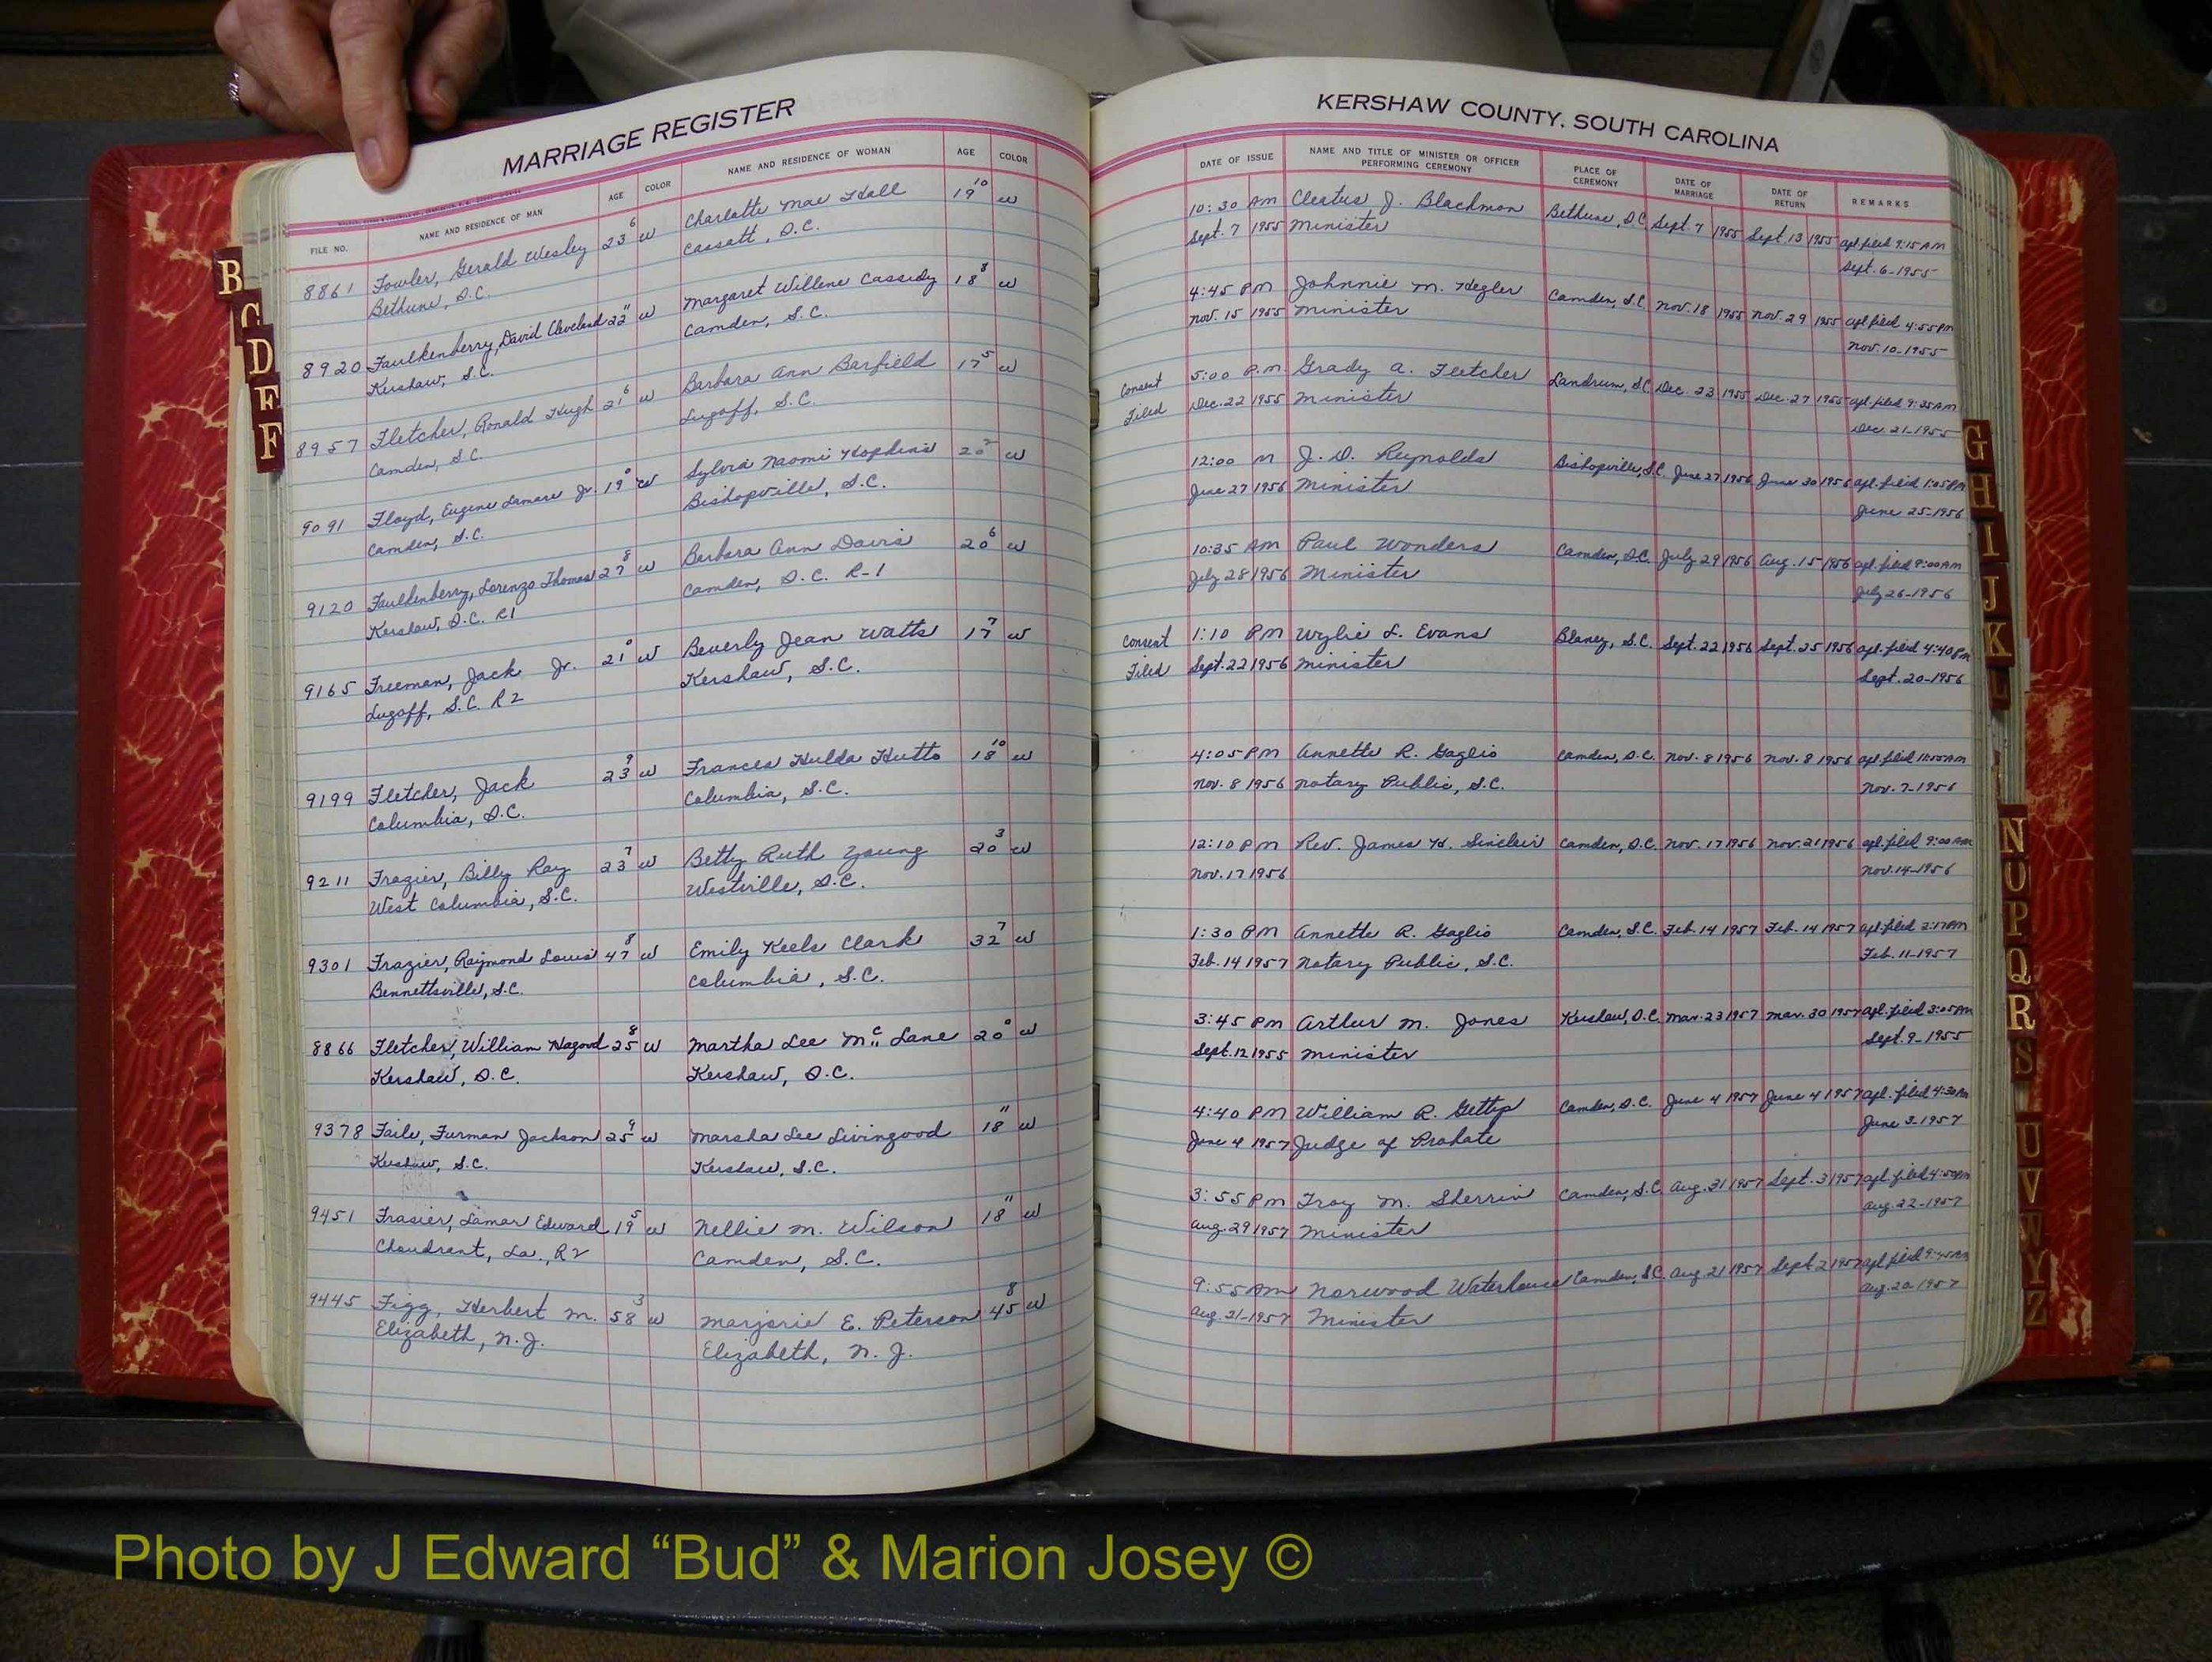 MARRIAGE REGISTER
FILE NO. NAME AND RESIDENCE OF MAN AGE COLOR NAME AND RESIDENCE OF WOMAN AGE COLOR
8861 Fowler, Gerald Wesley 23 6 W Charlotte Mae Hall 19 10 W
Bethune, S.C. Cassatt, S.C.
8920 Faulkenberry, David Cleveland 22 11 W Margaret Willene Cassidy 18 8 W
Kershaw, S.C. Camden, S.C.
8957 Fletcher, Ronald Hugh 21 6 W Barbara Ann Barfield 17 5 W
Camden, S.C. Lugoff, S.C.
9091 Floyd, Eugene Lamare Jr. 19 0 W Sylvia Naomi Hopkins 20 2 W
Camden, S.C. Bishopville, S.C.
9120 Faulkenberry, Lorenzo Thomas 27 8 W Barbara Ann Davis 20 6 W
Kershaw, S.C. R1 Camden, S.C. R-1
9165 Freeman, Jack Jr. 21 0 W Beverly Jean Watts 17 7 W
Lugoff, S.C. R2 Kershaw, S.C.
9199 Fletcher, Jack 23 9 W Frances Hulda Hutto 18 10 W
Columbia, S.C. Columbia, S.C.
9211 Frazier, Billy Ray 23 7 W Betty Ruth Young 20 3 W
West Columbia, S.C. Westville, S.C.
9301 Frazier, Raymond Louis 47 8 W Emily Keels Clark 32 7 W
Bennettsville, S.C. Columbia, S.C.
8866 Fletcher, William Hagood 25 8 W Martha Lee McLane 20 0 W
Kershaw, S.C. Kershaw, S.C.
9378 Faile, Furman Jackson 25 9 W Marsha Lee Livingood 18 11 W
Kershaw, S.C. Kershaw, S.C.
9451 Frasier, Lamar Edward 19 5 W Nellie M. Wilson 18 11 W
Choudrant, La., R2 Camden, S.C.
9445 Figg, Herbert M. 58 3 W Marjorie E. Peterson 45 8 W
Elizabeth, N.J. Elizabeth, N.J.
KERSHAW COUNTY, SOUTH CAROLINA
DATE OF ISSUE NAME AND TITLE OF MINISTER OR OFFICER PERFORMING CEREMONY PLACE OF CEREMONY DATE OF MARRIAGE DATE OF RETURN REMARKS
10:30 AM Cleatus J. Blackmon Bethune, S.C. Sept. 7 1955 Sept. 13 1955 apl. filed 9:15 AM
Sept. 7 1955 Minister Sept. 6-1955
4:45 PM Johnnie M. Hegler Camden, S.C. Nov. 18 1955 Nov. 29 1955 apl filed 4:55 PM
Nov. 15 1955 Minister Nov. 10-1955
Consent 5:00 P.M. Grady A. Fletcher Landrum, S.C. Dec. 23 1955 Dec. 27 1955 apl. filed 9:35 AM
Filed Dec. 22 1955 Minister Dec. 21-1955
12:00 M J. D. Reynolds Bishopville, S.C. June 27 1956 June 30 1956 apl. filed 1:05 PM
June 27 1956 Minister June 25-1956
10:35 AM Paul Wonders Camden, S.C. July 29 1956 Aug. 15 1956 apl. filed 9:00 AM
July 28 1956 Minister July 26-1956
Consent 1:10 PM Wylie L. Evans Blaney, S.C. Sept. 22 1956 Sept. 25 1956 apl. filed 4:40 PM
Filed Sept. 22 1956 Minister Sept. 20-1956
4:05 PM Annette R. Gaglio Camden, S.C. Nov. 8 1956 Nov. 8 1956 apl. filed AM
Nov. 8 1956 Notary Public, S.C. Nov. 7-1956
12:10 PM Rev. James H. Sinclair Camden, S.C. Nov. 17 1956 Nov. 21 1956 apl. filed 9:00 AM
Nov. 17 1956 Nov. 14-1956
1:30 PM Annette R. Gaglio Camden, S.C. Feb. 14 1957 Feb. 14 1957 apl. filed
Feb. 14 1957 Notary Public, S.C. Feb. 11-1957
3:45 PM Arthur M. Jones Kershaw, S.C. Mar. 23 1957 Mar. 30 1957 apl. filed
Sept. 12 1955 Minister Sept. 9-1955
4:40 PM William R. Gettys Camden, S.C. June 4 1957 June 4 1957 apl. filed
June 4 1957 Judge of Probate June 3-1957
3:55 PM Troy M. Sherrin Camden, S.C. Aug. 31 1957 Sept. 3 1957 apl filed
Aug. 29 1957 Minister Aug. 22-1957
9:55 AM Norwood Waterhouse Camden, S.C. Aug. 21 1957 Sept. 2 1957 apl filed
Aug. 21-1957 Minister Aug. 20-1957
B
C
D
E
F
G
H
I
J
K
L
N
O
P
Q
R
S
U
V
W
Y
Z
Photo by J Edward “Bud” & Marion Josey ©